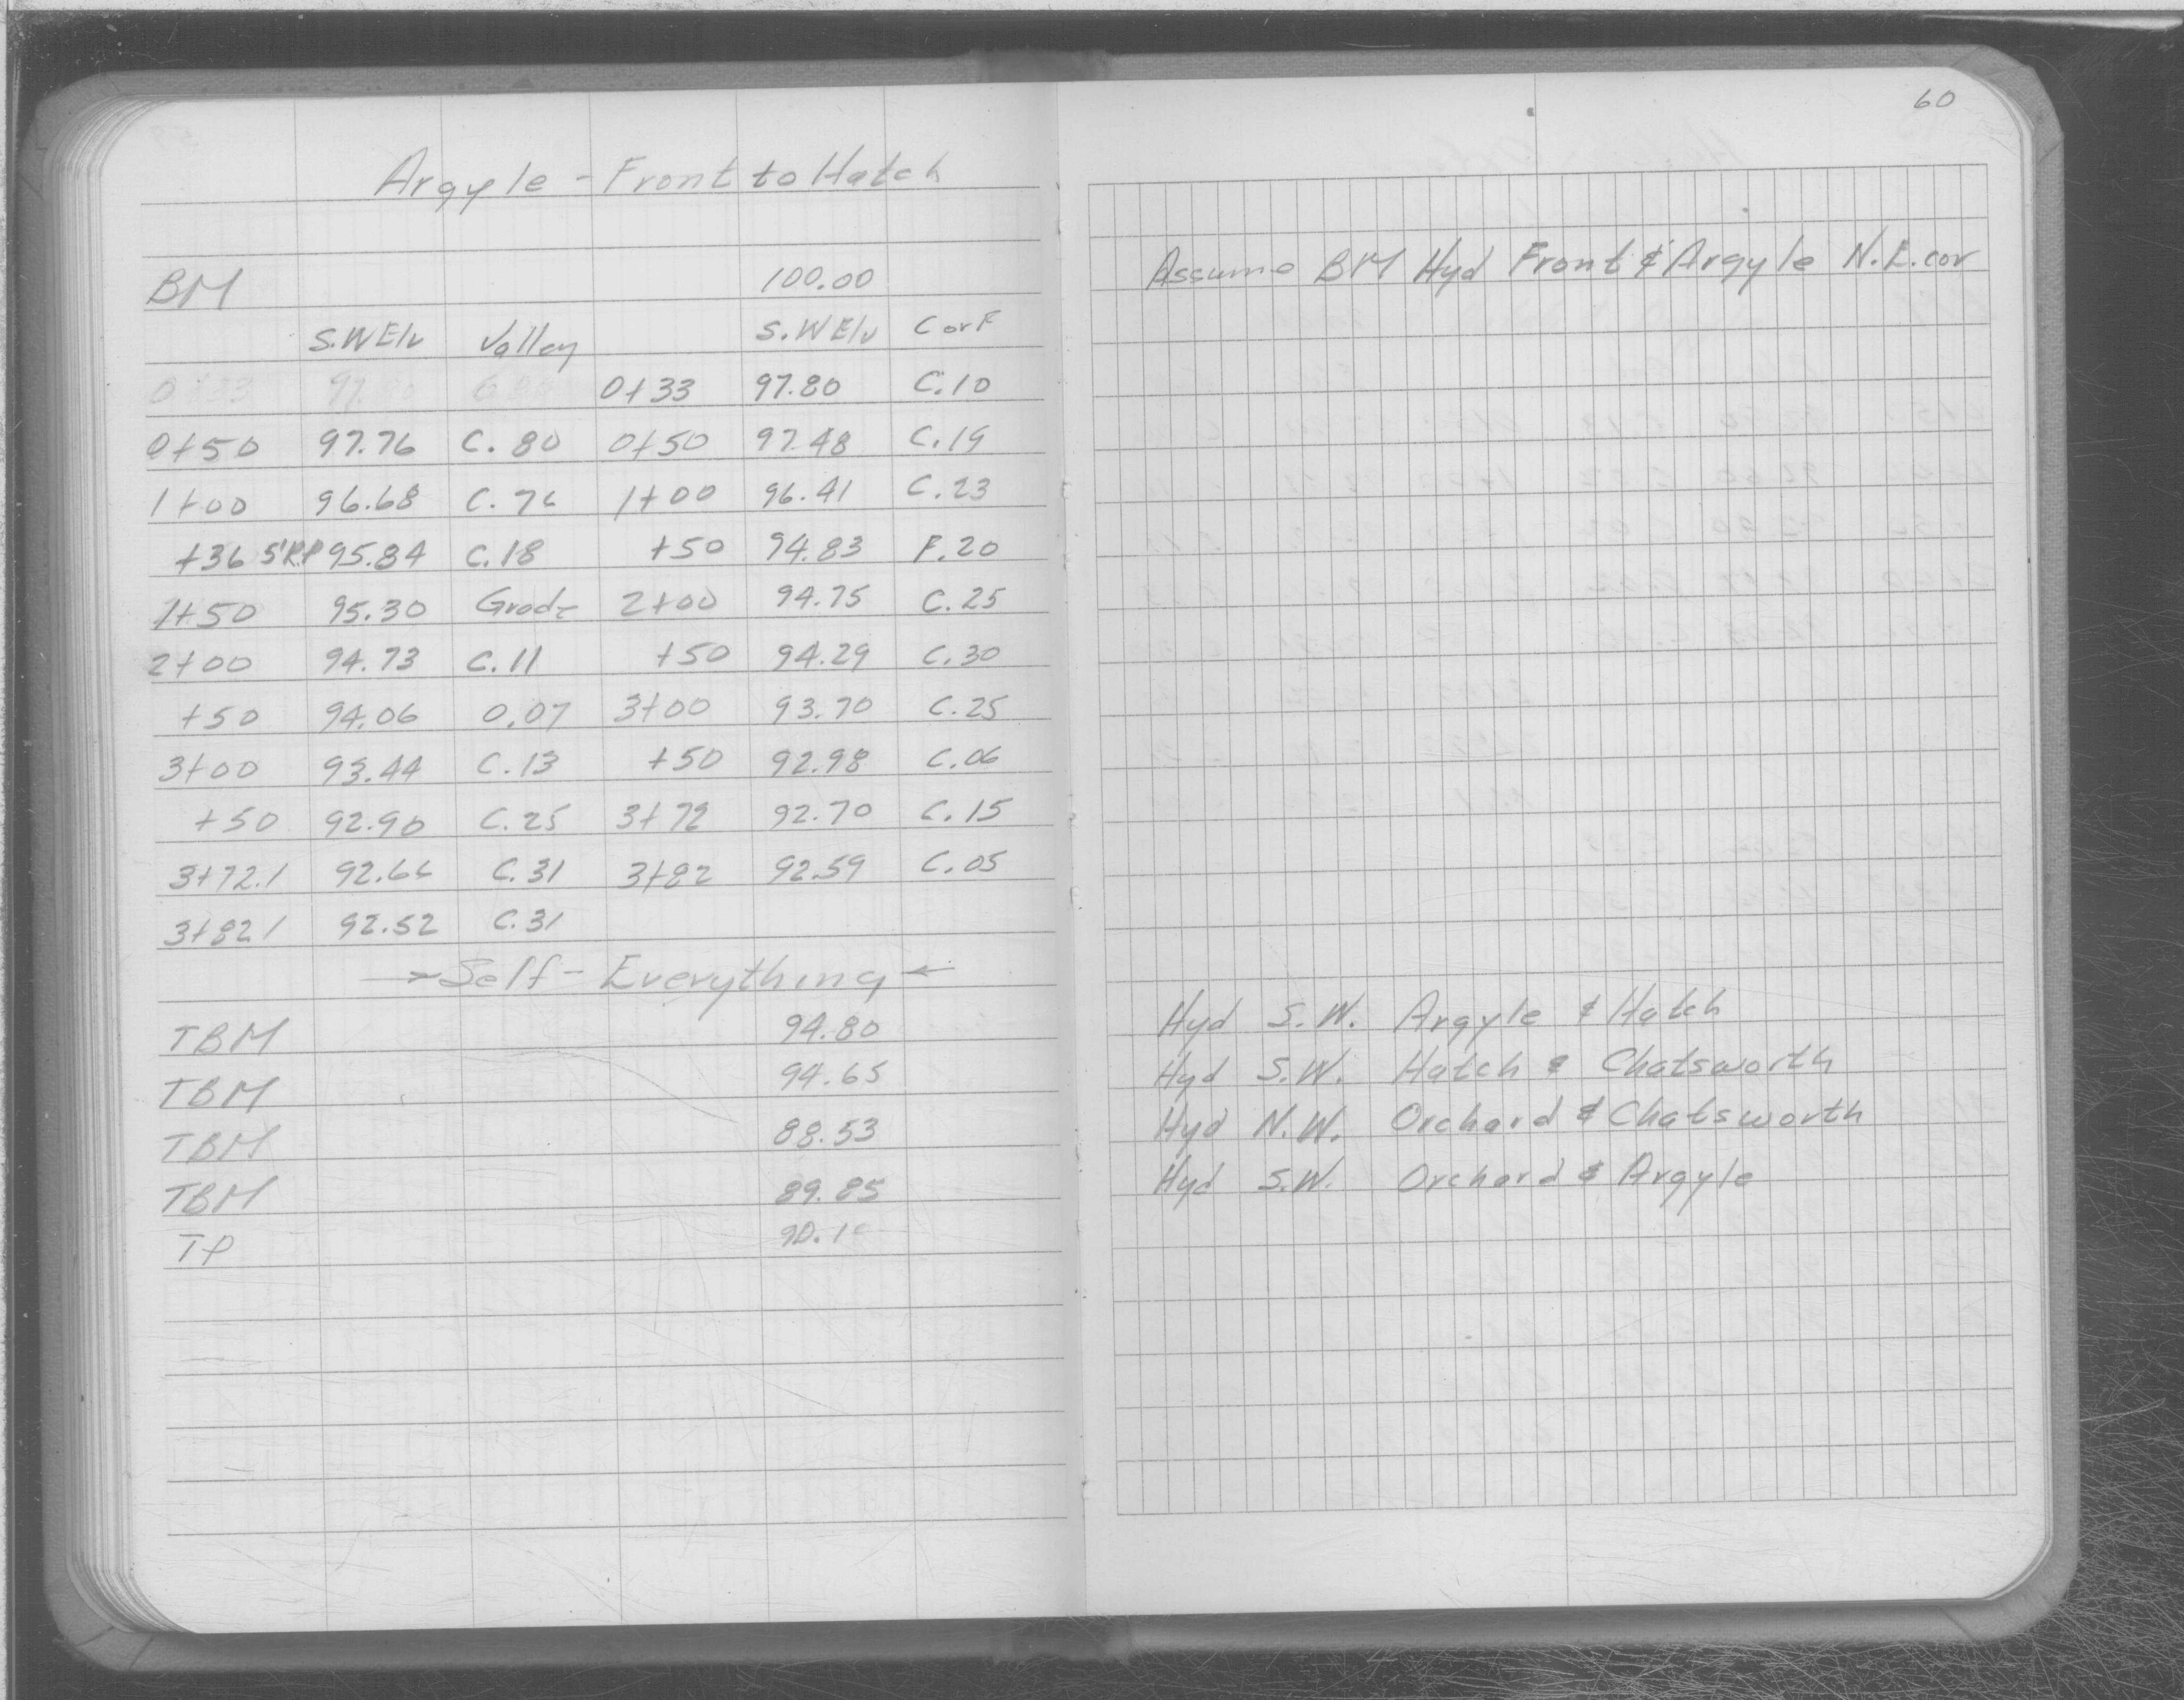 Argyle - Front to Hatch
BM 100.00
S.W Elv Valley S.W Elv C or F
0+33 97. 0+33 97.80 C.10
0+50 97.76 C.80 0+50 97.48 C.19
1+00 96.68 C.76 1+00 96.41 C.23
+36 5'R.P 95.84 C.18 +50 94.83 F.20
1+50 95.30 Grade 2+00 94.75 C.25
2+00 94.73 C.11 +50 94.29 C.30
+50 94.06 0.07 3+00 93.70 C.25
3+00 93.44 C.13 +50 92.98 C.06
+50 92.90 C.25 3+72 92.70 C.15
3+72.1 92.66 C.31 3+82 92.59 C.05
3+82.1 92.52 C.31
→ Self - Everything ←
TBM 94.80
TBM 94.65
TBM 88.53
TBM 89.85
TP
60
Assume BM Hyd Front & Argyle N.E. cor
Hyd S.W. Argyle & Hatch
Hyd S.W. Hatch & Chatsworth
Hyd N.W. Orchard & Chatsworth
Hyd S.W. Orchard & Argyle